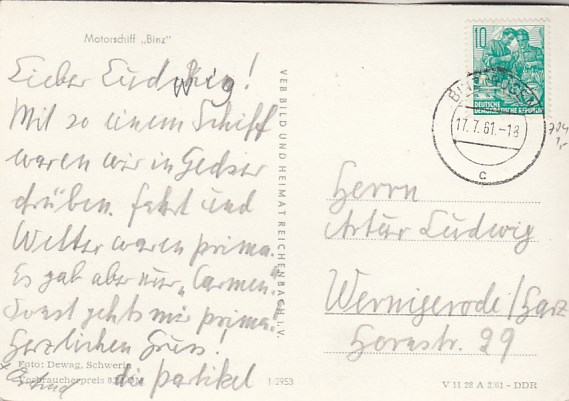 Motorschiff „Binz"
Lieber Ludwig!
Mit so einem Schiff
waren wir in Gedser
drüben. Fahrt und
Wetter waren prima.
Es gab aber nur „Carmen".
Sonst gehts mir prima.
Herzlichen Gruss!
die Partikel
Foto: Dewag, Schwerin
Verbraucherpreis
1/2953
VEB BILD UND HEIMAT REICHENBACH I. V.
10
DEUTSCHE
DEMOKRATISCHE REPUBLIK
17.7.61.-18
c
Herrn
Artur Ludwig
Wernigerode/Harz
29
V 11 28 A 3/61 - DDR